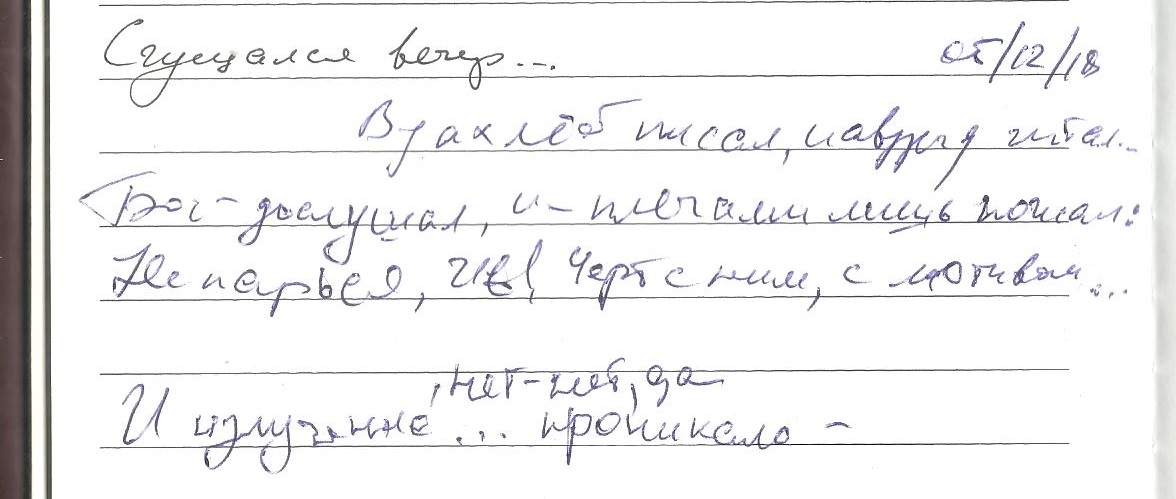 Сгущался вечер... 05/12/18
Взахлёб писал, навзрыд читал...
Бог – дослушал, и – плечами лишь пожал:
Не парься, Чёрт с ним, с мотивом...
, нет-нет, да
И излучение ... проникало –